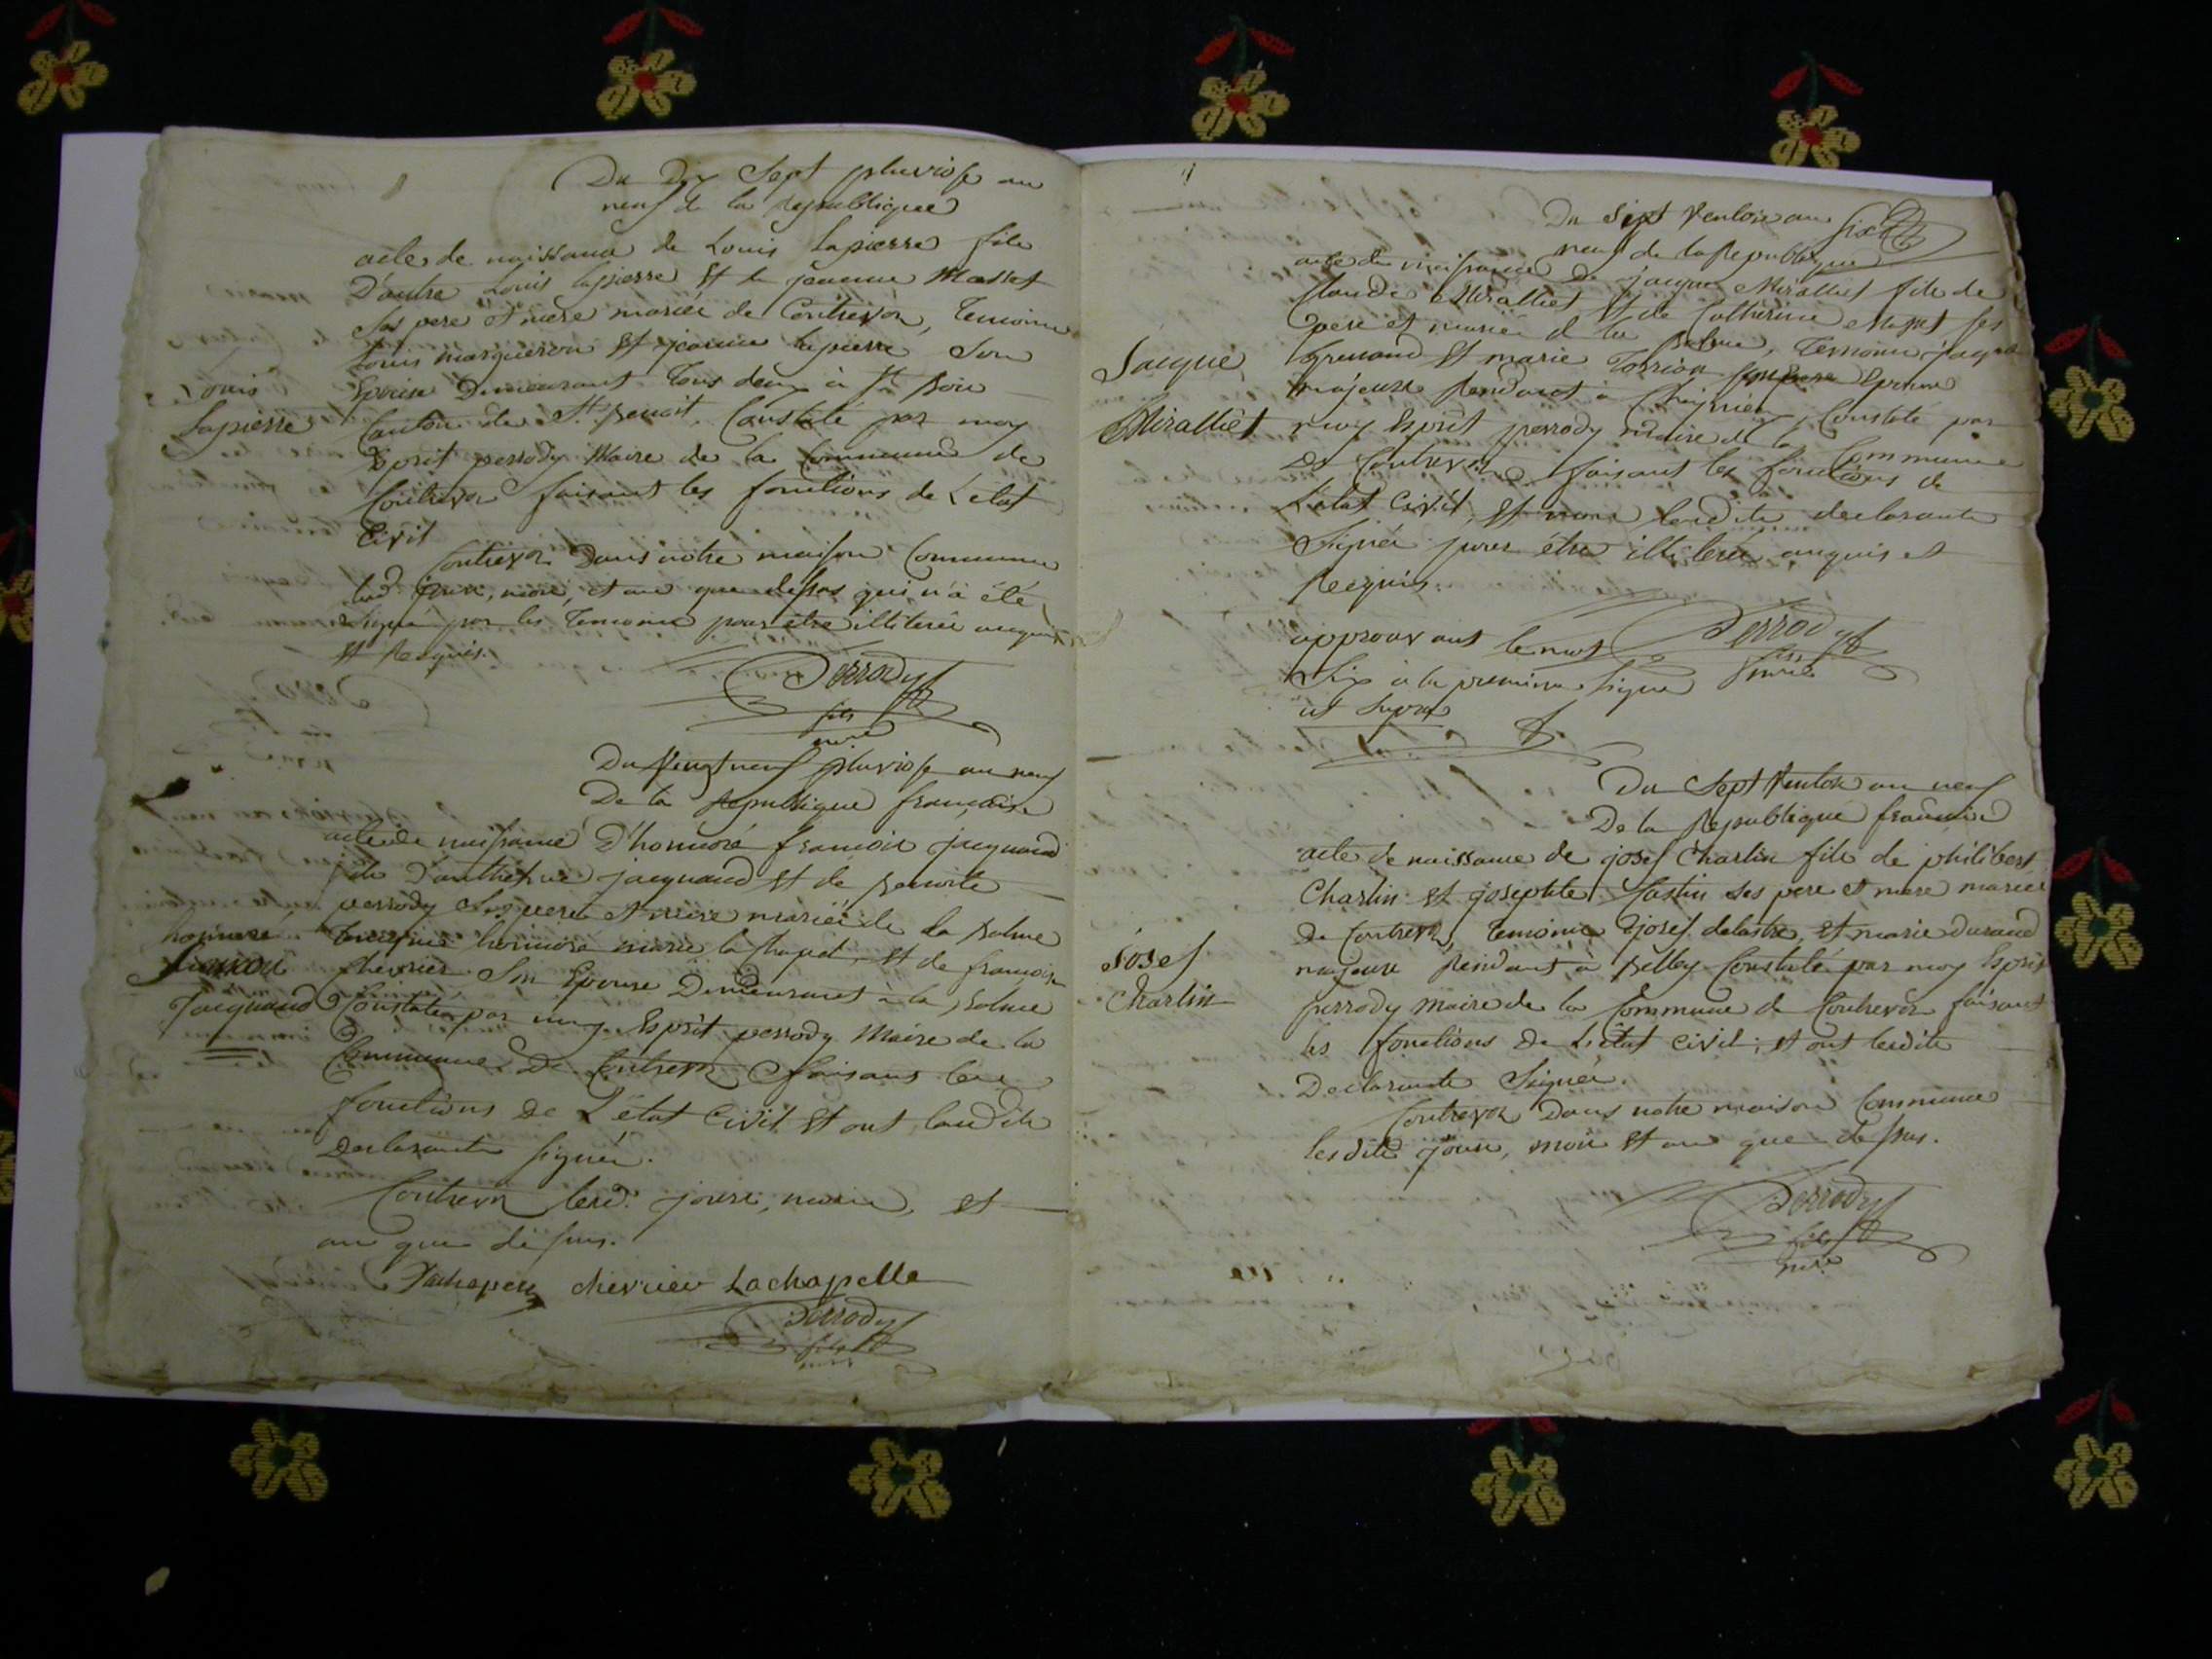 Du Dix Sept pluviose an
neuf de la Republique
acte de naissance de Louis Lapierre fils
D'autre Louis lapierre et de jeanne Masset
Ses pere et mere mariés de Contrevoz, Temoins
Louis marqueron et jeanne lapierre Son
Epouse Demeurant Tous deux à St Boie
Louis
Lapierre
Canton de St. Benoit, Constaté par moy
Esprit perrody Maire de la Commune de
Contrevoz faisant les fonctions de L'etat
Civil
Contrevoz Dans notre maison Commune
led. jour, mois, et an que dessus qui n'a été
Signé par les Temoins pour être illiterés enquis
et Requis.
Perrody
fils
maire
Du Vingt neuf pluviose an neuf
De la Republique française
acte de naissance D'honnoré françois jacquand
fils D'anthelme jacquand et de Benoite
perrody Ses pere et mere mariés de La Balme
honnoré
françois
Jacquand
Temoins honnoré marie la Chapel, et de françoise
chevrier Son Epouse Demeurant à la Balme
Constaté par moy Esprit perrody Maire de la
Commune De Contrevoz faisant les
fonctions De L'état Civil et ont lesdits
Declarants signés.
Contrevoz lesd. jour, mois, et
an que dessus.
Lachapelle chevrier Lachapelle
Perrody
fils
maire
Du Sept Ventose an six
neuf de la Republique
acte de naissance de jacque Miralliet fils de
Claude Miralliet et de Catherine Masset ses
pere et mariés de la Balme, Temoins jacque
Grenand et marie Torrion Epouse
Jacque
Miralliet
majeurs Rendant à Cheignieu, Constaté par
moy Esprit perrody maire de la Commune
De Contrevoz faisant les fonctions de
L'état Civil, et non lesdits declarants
Signés pour être illiterés enquis et
Requis.
approuvant le mot
Six à la premiere ligne
ut supra
Perrody
fils
maire
Du Sept Ventose an neuf
De la Republique française
acte de naissance de josef Charlin fils de philibert
Charlin et josephte Fastin ses pere et mere mariés
De Contrevoz, Temoins josef delastre et marie Durand
josef
Charlin
majeurs Rendant à Belley Constaté par moy Esprit
perrody maire de la Commune de Contrevoz faisant
les fonctions De L'état Civil; et ont lesdits
Declarants Signés.
Contrevoz Dans notre maison Commune
lesdits jour, mois et an que dessus.
Perrody
fils
mre